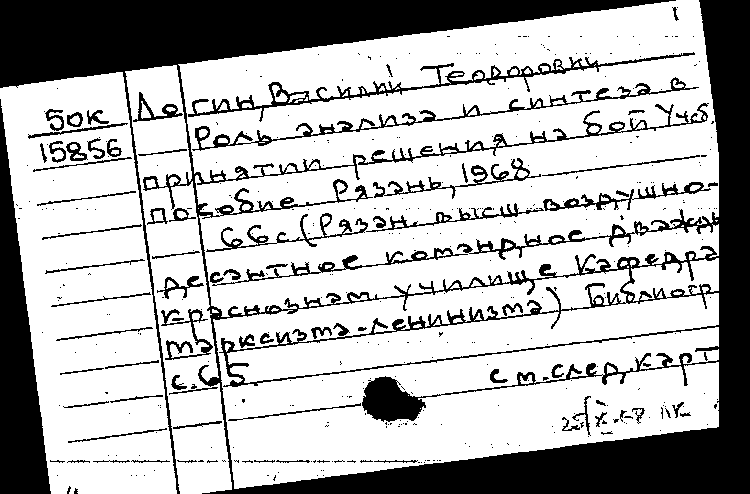 1
50К Логин, Василий Теодорович
15856 Роль анализа и синтеза в
принятии решения на бой. Учеб.
пособие. Рязань, 1968
66 с. (Рязан. высш. воздушно-
десантное командное дважды
краснознам. училище Кафедра
марксизма-ленинизма) Библиогр
с. 65.
см. след. карт